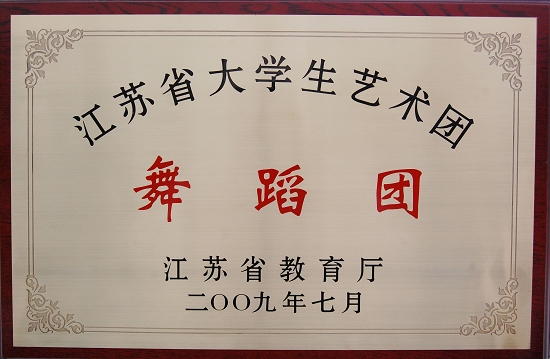 江苏省大学生艺术团
舞蹈团
江苏省教育厅
二〇〇九年七月